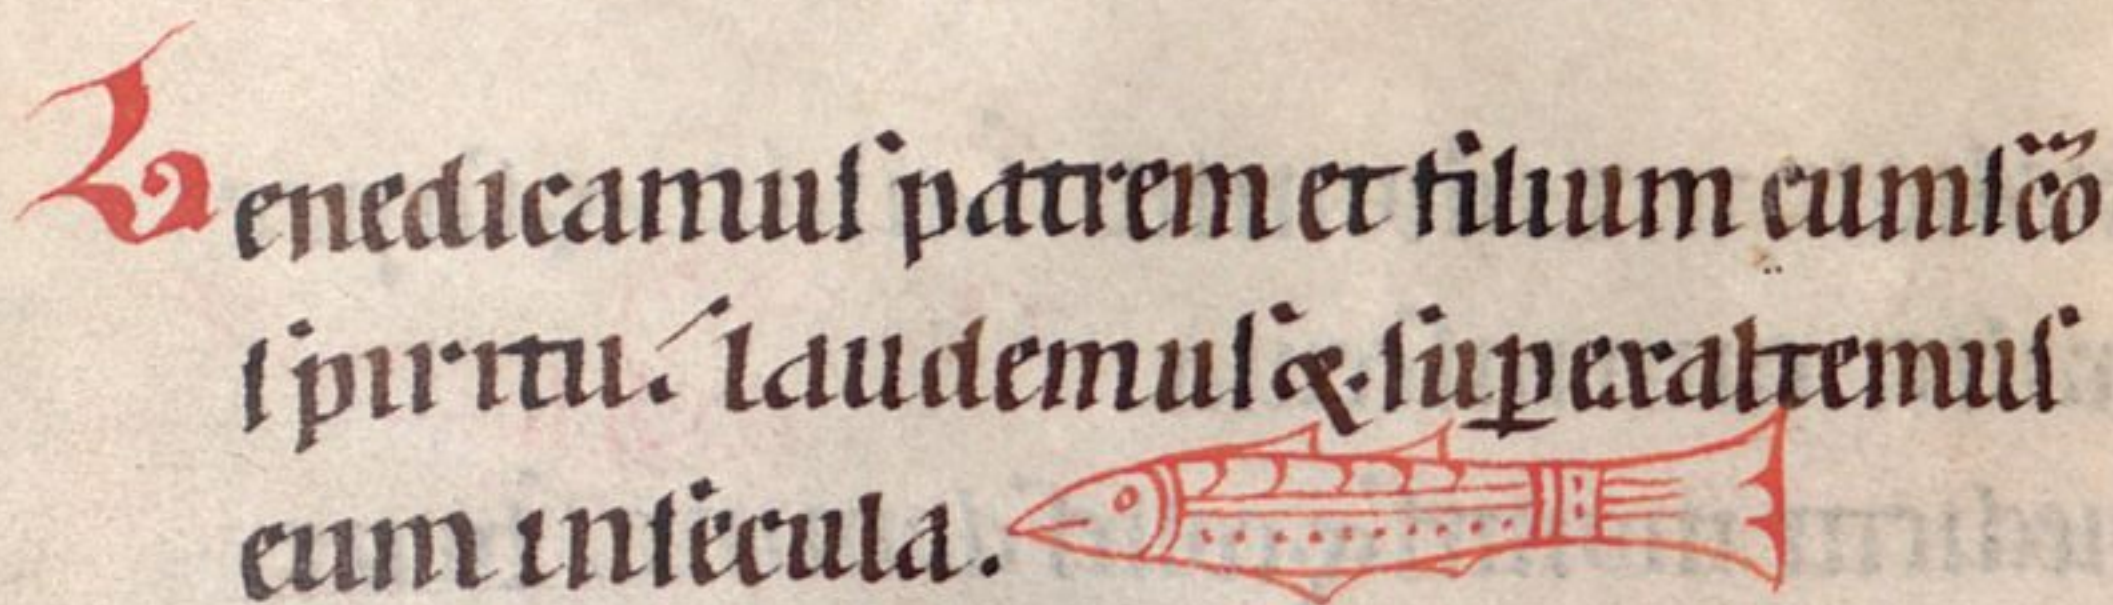 Benedicamuſ patrem et filium cumſc̄o
ſpiritu. laudemuſ q̨. ſuꝑexaltemuſ
eum inſecula.